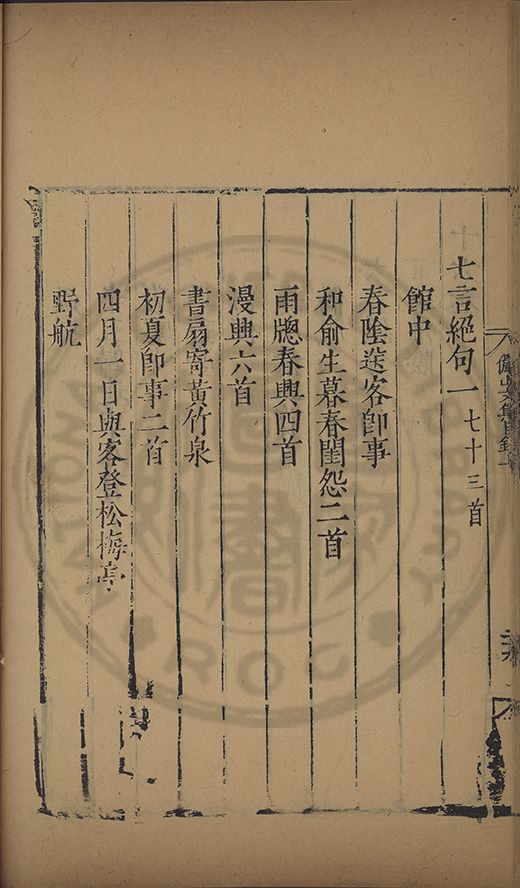 七言絕句一七十三首
館中
春陰送客卽事
和俞生暮春閨怨二首
雨牕春興四首
漫興六首
書扇寄黃竹泉
初夏卽事二首
四月一日與客登松梅亭
野航